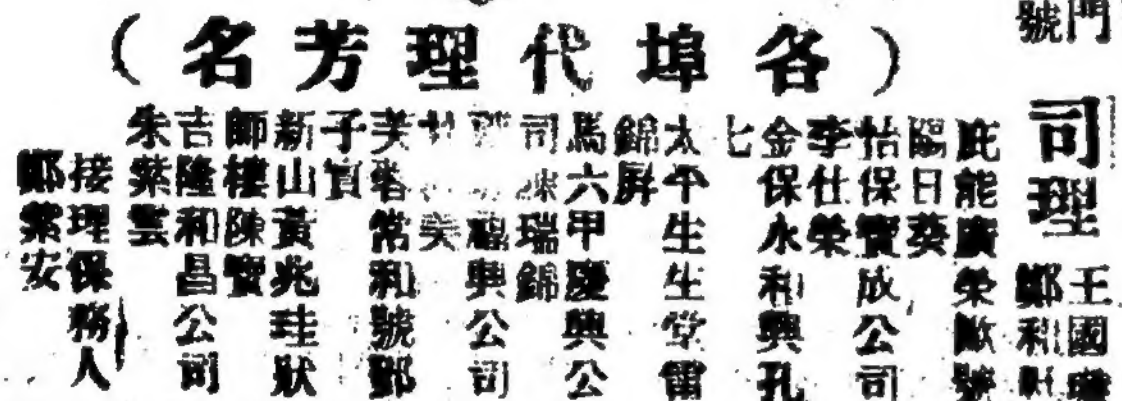 門
號
(各埠代理芳名)
司理
王國
鄭利
庇能廣榮號
歐陽日葵
怡保寶成公司
李仕榮
金保永和興孔
七
太平生生堂雷
錦屏
馬六甲慶興公
司陳瑞錦
福興公司
美
芙蓉常和號鄧
子賓
新山黃兆珪狀
師樓陳寶
吉隆和昌公司
朱紫雲
接理保務人
鄭紫安